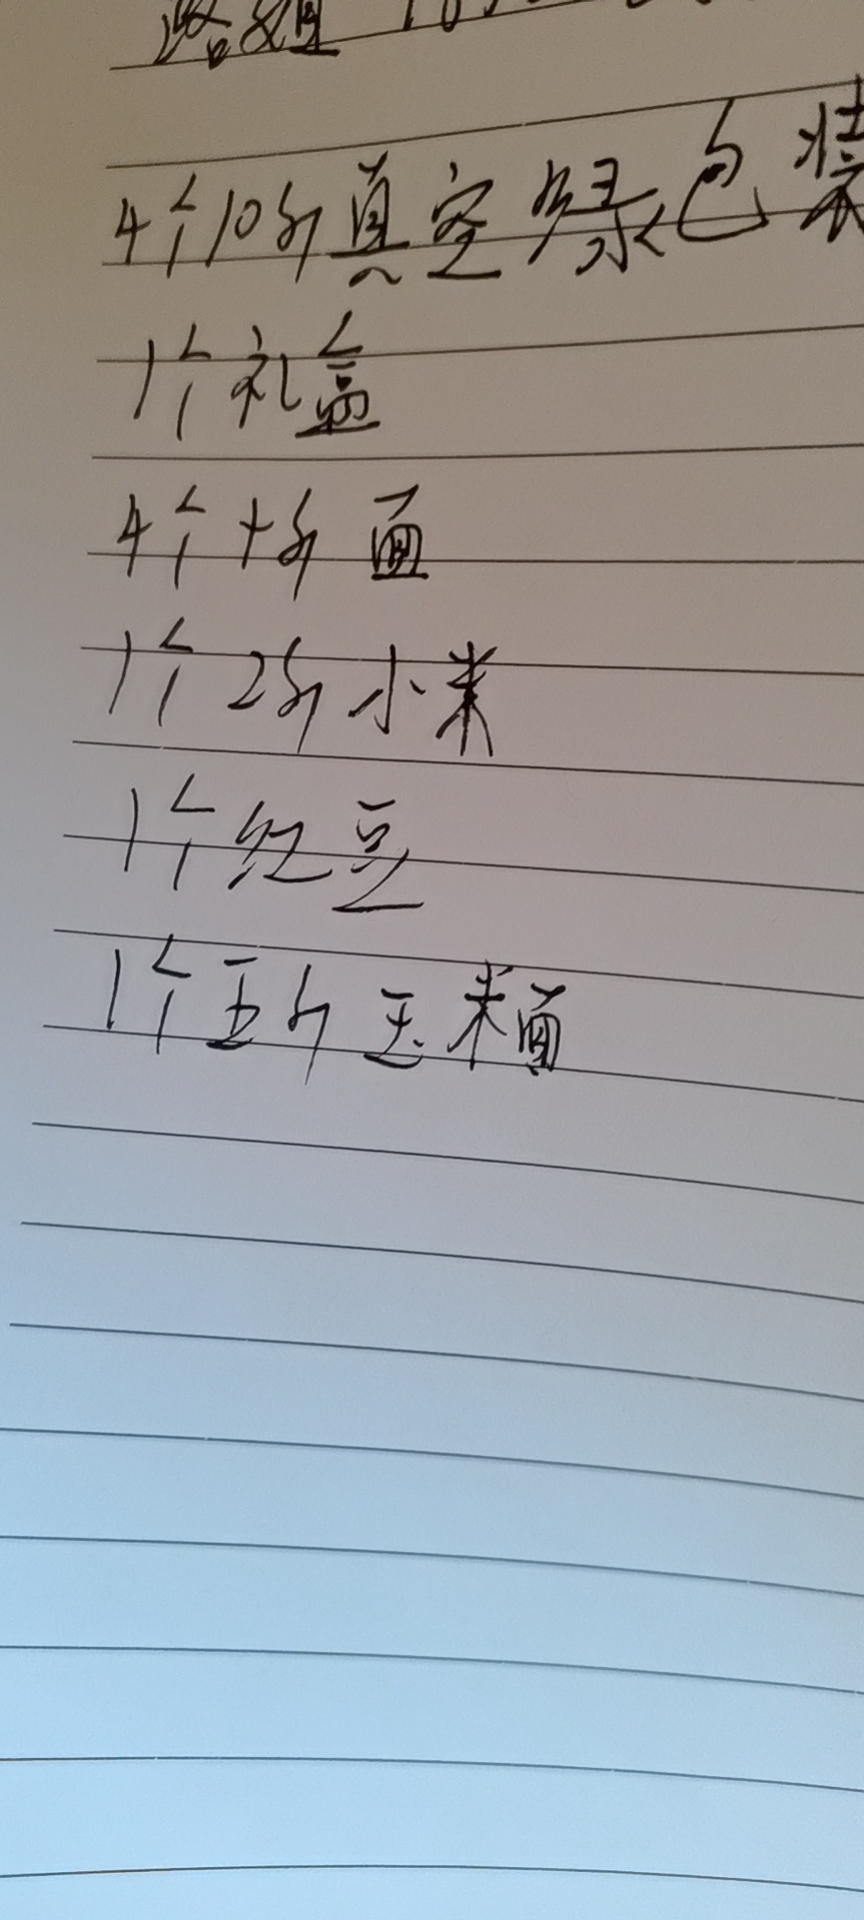 路姐
4个10斤真空绿包装
1个礼盒
4个十斤面
1个2斤小米
1个红豆
1个五斤玉米面